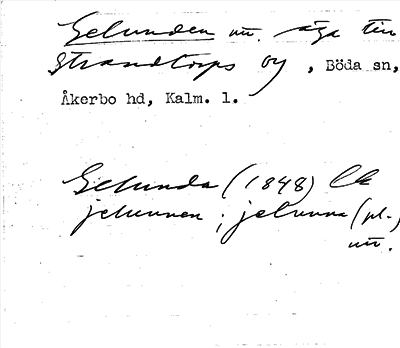 Gelunden m. äga till
Strandtorps by, Böda sn,
Åkerbo hd, Kalm. l.
Gelunda (1848)
jelunnen; jelunna (pl.)
m.